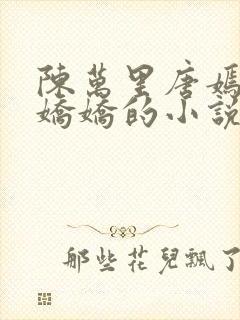 陳萬里唐嫣
嬌嬌的小說
那些花兒飄了